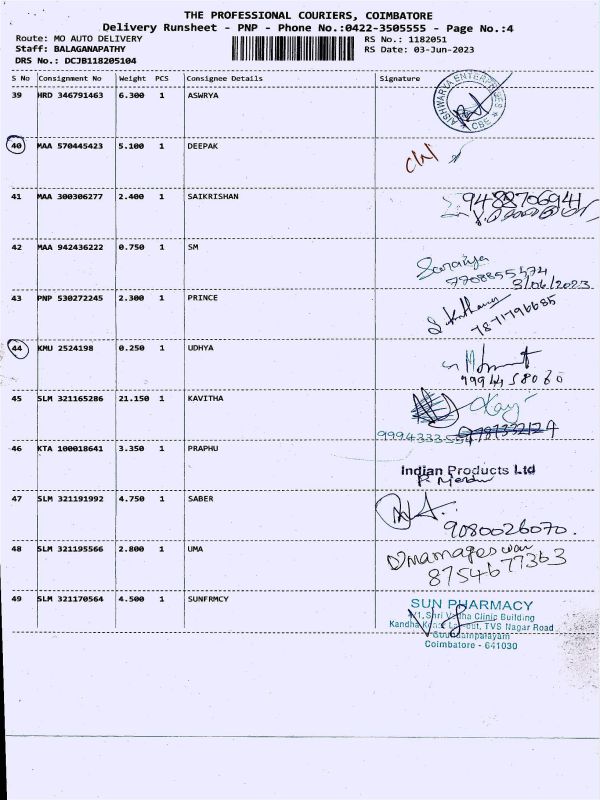 THE PROFESSIONAL COURIERS, COIMBATORE
Delivery Runsheet - PNP - Phone No.:0422-3505555 - Page No.:4
Route: MO AUTO DELIVERY RS No.: 1182051
Staff: BALAGANAPATHY RS Date: 03-Jun-2023
DRS No.: DCJB118205104
S No Consignment No Weight PCS Consignee Details Signature
39 HRD 346791463 6.300 1 ASWRYA
AISHWARYA ENTERPRISES
* CBE *
40 MAA 570445423 5.100 1 DEEPAK
41 MAA 300306277 2.400 1 SAIKRISHAN
9488706941
42 MAA 942436222 0.750 1 SM
Saranya
7708855474
3/06/2023
43 PNP 530272245 2.300 1 PRINCE
7871796685
44 KMU 2524198 0.250 1 UDHYA
9994458060
45 SLM 321165286 21.150 1 KAVITHA
46 KTA 100018641 3.350 1 PRAPHU
Indian Products Ltd
47 SLM 321191992 4.750 1 SABER
9080026070.
48 SLM 321195566 2.800 1 UMA
Umamageswari
8754677363
49 SLM 321170564 4.500 1 SUNFRMCY
SUN PHARMACY
Clinic Building
TVS Nagar Road
Coimbatore - 641030